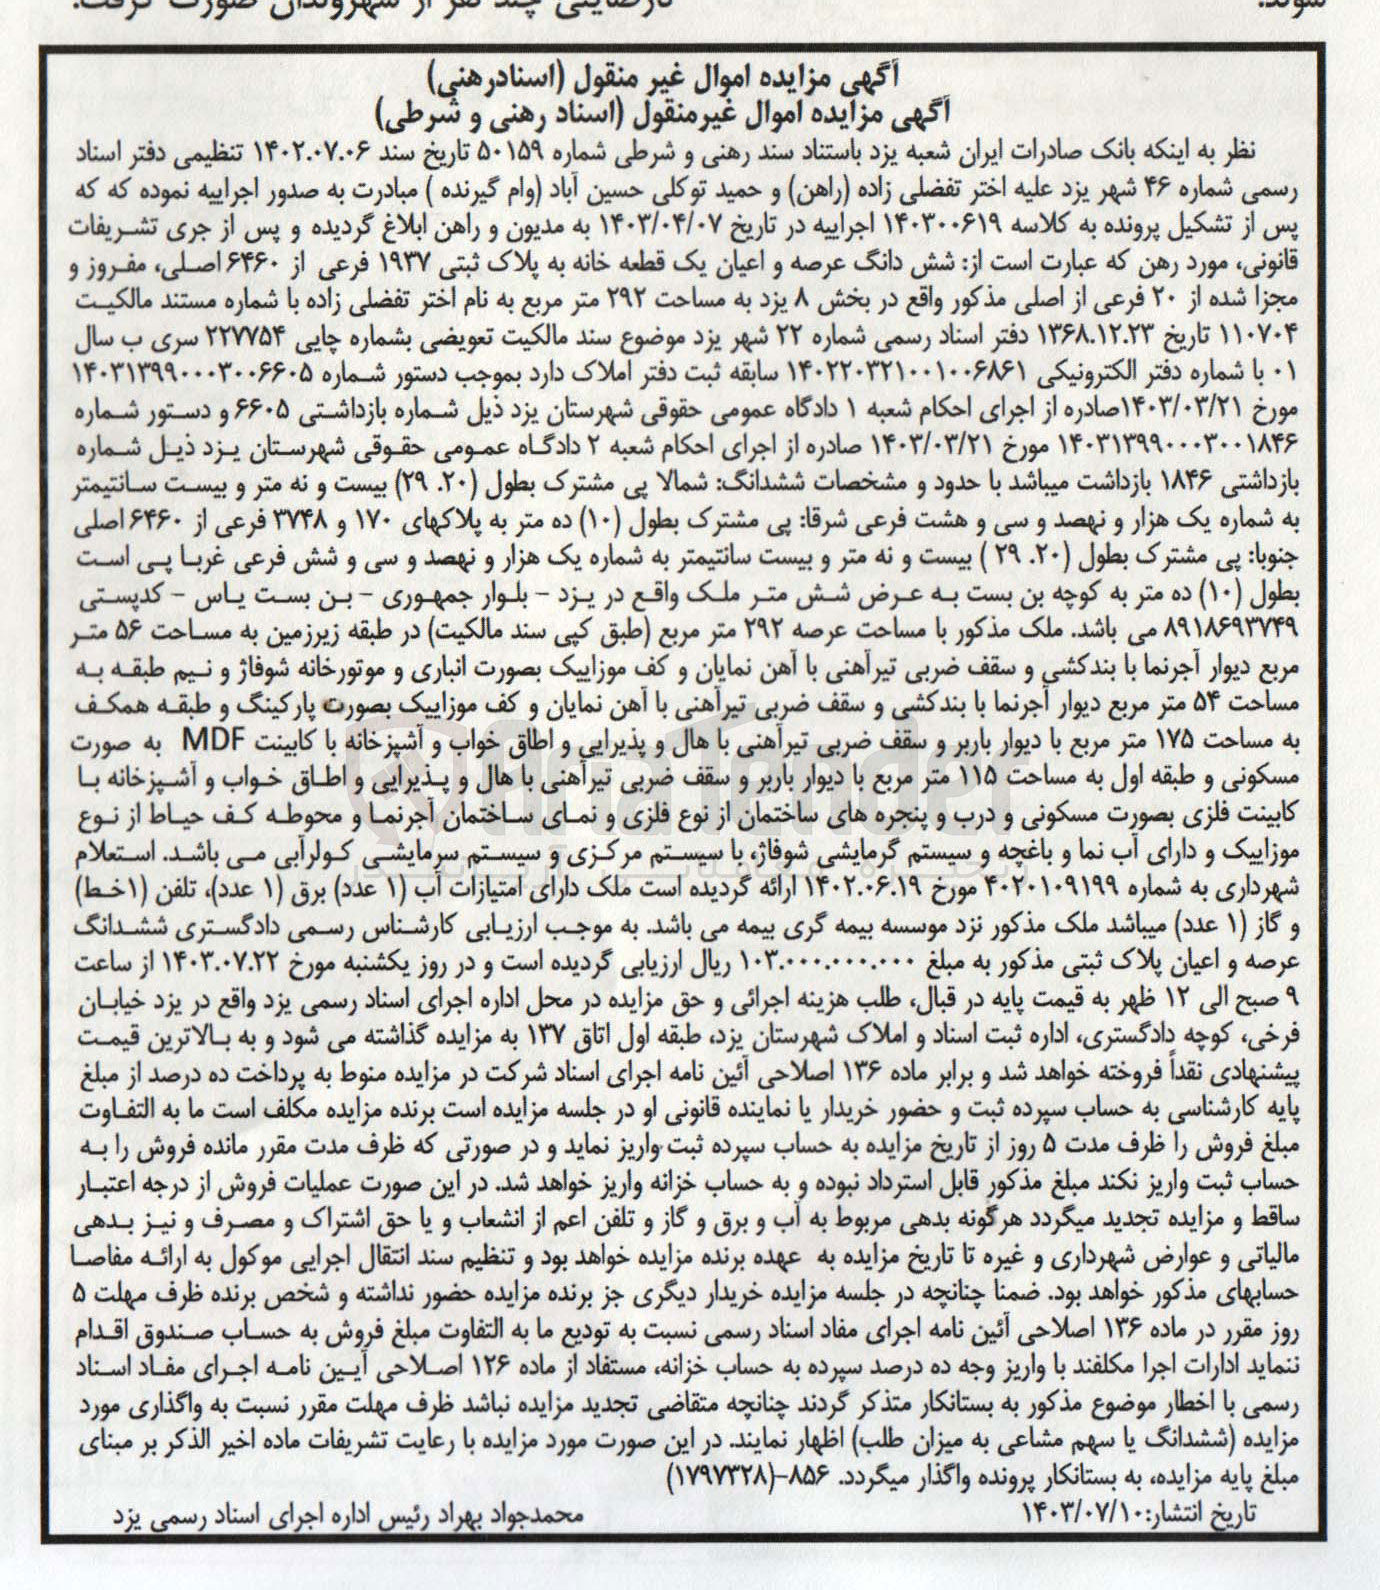 آگهی مزایده اموال غیر منقول (اسنادرهنی)
آگهی مزایده اموال غیرمنقول (اسناد رهنی و شرطی)
نظر به اینکه بانک صادرات ایران شعبه یزد باستناد سند رهنی و شرطی شماره ۵۰۱۵۹ تاریخ سند ۱۴۰۲.۰۷.۰۶ تنظیمی دفتر اسناد
رسمی شماره ۴۶ شهر یزد علیه اختر تفضلی زاده (راهن) و حمید توکلی حسین آباد (وام گیرنده ) مبادرت به صدور اجراییه نموده که که
پس از تشکیل پرونده به کلاسه ۱۴۰۳۰۰۶۱۹ اجراییه در تاریخ ۱۴۰۳/۰۴/۰۷ به مدیون و راهن ابلاغ گردیده و پس از جری تشـریفات
قانونی، مورد رهن که عبارت است از: شش دانگ عرصه و اعیان یک قطعه خانه به پلاک ثبتی ۱۹۳۷ فرعی از ۶۴۶۰ اصلی، مفروز و
مجزا شده از ۲۰ فرعی از اصلی مذکور واقع در بخش ۸ یزد به مساحت ۲۹۲ متر مربع به نام اختر تفضلی زاده با شماره مستند مالکیت
۱۱۰۷۰۴ تاریخ ۱۳۶۸.۱۲.۲۳ دفتر اسناد رسمی شماره ۲۲ شهر یزد موضوع سند مالکیت تعویضی بشماره چاپی ۲۲۷۷۵۴ سری ب سال
۰۱ با شماره دفتر الکترونیکی ۱۴۰۲۲۰۳۲۱۰۰۱۰۰۶۸۶۱ سابقه ثبت دفتر املاک دارد بموجب دستور شماره ۱۴۰۳۱۳۹۹۰۰۰۳۰۰۶۶۰۵
مورخ ۱۴۰۳/۰۳/۲۱صادره از اجرای احکام شعبه ۱ دادگاه عمومی حقوقی شهرستان یزد ذیل شماره بازداشتی ۶۶۰۵ و دستور شماره
۱۴۰۳۱۳۹۹۰۰۰۳۰۰۱۸۴۶ مورخ ۱۴۰۳/۰۳/۲۱ صادره از اجرای احکام شعبه ۲ دادگاه عمومی حقوقی شهرستان یزد ذیل شماره
بازداشتی ۱۸۴۶ بازداشت میباشد با حدود و مشخصات ششدانگ: شمالا پی مشترک بطول (۲۰. ۲۹) بیست و نه متر و بیست سانتیمتر
به شماره یک هزار و نهصد و سی و هشت فرعی شرقا: پی مشترک بطول (۱۰) ده متر به پلاکهای ۱۷۰ و ۳۷۴۸ فرعی از ۶۴۶۰ اصلی
جنوبا: پی مشترک بطول (۲۰. ۲۹ ) بیست و نه متر و بیست سانتیمتر به شماره یک هزار و نهصد و سی و شش فرعی غربا پی است
بطول (۱۰) ده متر به کوچه بن بست به عرض شش متر ملک واقع در یزد – بلوار جمهوری – بن بست یاس – کدپستی
۸۹۱۸۶۹۳۷۴۹ می باشد. ملک مذکور با مساحت عرصه ۲۹۲ متر مربع (طبق کپی سند مالکیت) در طبقه زیرزمین به مساحت ۵۶ متر
مربع دیوار آجرنما با بندکشی و سقف ضربی تیرآهنی با آهن نمایان و کف موزاییک بصورت انباری و موتورخانه شوفاژ و نیم طبقه به
مساحت ۵۴ متر مربع دیوار آجرنما با بندکشی و سقف ضربی تیرآهنی با آهن نمایان و کف موزاییک بصورت پارکینگ و طبقه همکف
به مساحت ۱۷۵ متر مربع با دیوار باربر و سقف ضربی تیرآهنی با هال و پذیرایی و اطاق خواب و آشپزخانه با کابینت MDF به صورت
مسکونی و طبقه اول به مساحت ۱۱۵ متر مربع با دیوار باربر و سقف ضربی تیرآهنی با هال و پذیرایی و اطاق خواب و آشپزخانه با
کابینت فلزی بصورت مسکونی و درب و پنجره های ساختمان از نوع فلزی و نمای ساختمان آجرنما و محوطه کف حیاط از نوع
موزاییک و دارای آب نما و باغچه و سیستم گرمایشی شوفاژ، با سیستم مرکزی و سیستم سرمایشی کولرآبی می باشد. استعلام
شهرداری به شماره ۴۰۲۰۱۰۹۱۹۹ مورخ ۱۴۰۲.۰۶.۱۹ ارائه گردیده است ملک دارای امتیازات آب (۱ عدد) برق (۱ عدد)، تلفن (۱خط)
و گاز (۱ عدد) میباشد ملک مذکور نزد موسسه بیمه گری بیمه می باشد. به موجب ارزیابی کارشناس رسمی دادگستری ششدانگ
عرصه و اعیان پلاک ثبتی مذکور به مبلغ ۱۰۳.۰۰۰.۰۰۰.۰۰۰ ریال ارزیابی گردیده است و در روز یکشنبه مورخ ۱۴۰۳.۰۷.۲۲ از ساعت
۹ صبح الی ۱۲ ظهر به قیمت پایه در قبال، طلب هزینه اجرائی و حق مزایده در محل اداره اجرای اسناد رسمی یزد واقع در یزد خیابان
فرخی، کوچه دادگستری، اداره ثبت اسناد و املاک شهرستان یزد، طبقه اول اتاق ۱۳۷ به مزایده گذاشته می شود و به بالاترین قیمت
پیشنهادی نقداً فروخته خواهد شد و برابر ماده ۱۳۶ اصلاحی آئین نامه اجرای اسناد شرکت در مزایده منوط به پرداخت ده درصد از مبلغ
پایه کارشناسی به حساب سپرده ثبت و حضور خریدار یا نماینده قانونی او در جلسه مزایده است برنده مزایده مکلف است ما به التفاوت
مبلغ فروش را ظرف مدت ۵ روز از تاریخ مزایده به حساب سپرده ثبت واریز نماید و در صورتی که ظرف مدت مقرر مانده فروش را به
حساب ثبت واریز نکند مبلغ مذکور قابل استرداد نبوده و به حساب خزانه واریز خواهد شد. در این صورت عملیات فروش از درجه اعتبار
ساقط و مزایده تجدید میگردد هرگونه بدهی مربوط به آب و برق و گاز و تلفن اعم از انشعاب و یا حق اشتراک و مصرف و نیز بدهی
مالیاتی و عوارض شهرداری و غیره تا تاریخ مزایده به عهده برنده مزایده خواهد بود و تنظیم سند انتقال اجرایی موکول به ارائه مفاصا
حسابهای مذکور خواهد بود. ضمنا چنانچه در جلسه مزایده خریدار دیگری جز برنده مزایده حضور نداشته و شخص برنده ظرف مهلت ۵
روز مقرر در ماده ۱۳۶ اصلاحی آئین نامه اجرای مفاد اسناد رسمی نسبت به تودیع ما به التفاوت مبلغ فروش به حساب صندوق اقدام
ننماید ادارات اجرا مکلفند با واریز وجه ده درصد سپرده به حساب خزانه، مستفاد از ماده ۱۲۶ اصلاحی آیین نامه اجرای مفاد اسناد
رسمی با اخطار موضوع مذکور به بستانکار متذکر گردند چنانچه متقاضی تجدید مزایده نباشد ظرف مهلت مقرر نسبت به واگذاری مورد
مزایده (ششدانگ یا سهم مشاعی به میزان طلب) اظهار نمایند. در این صورت مورد مزایده با رعایت تشریفات ماده اخیر الذکر بر مبنای
مبلغ پایه مزایده، به بستانکار پرونده واگذار میگردد. ۸۵۶-(۱۷۹۷۳۲۸)
تاریخ انتشار:۱۴۰۳/۰۷/۱۰
محمدجواد بهراد رئیس اداره اجرای اسناد رسمی یزد